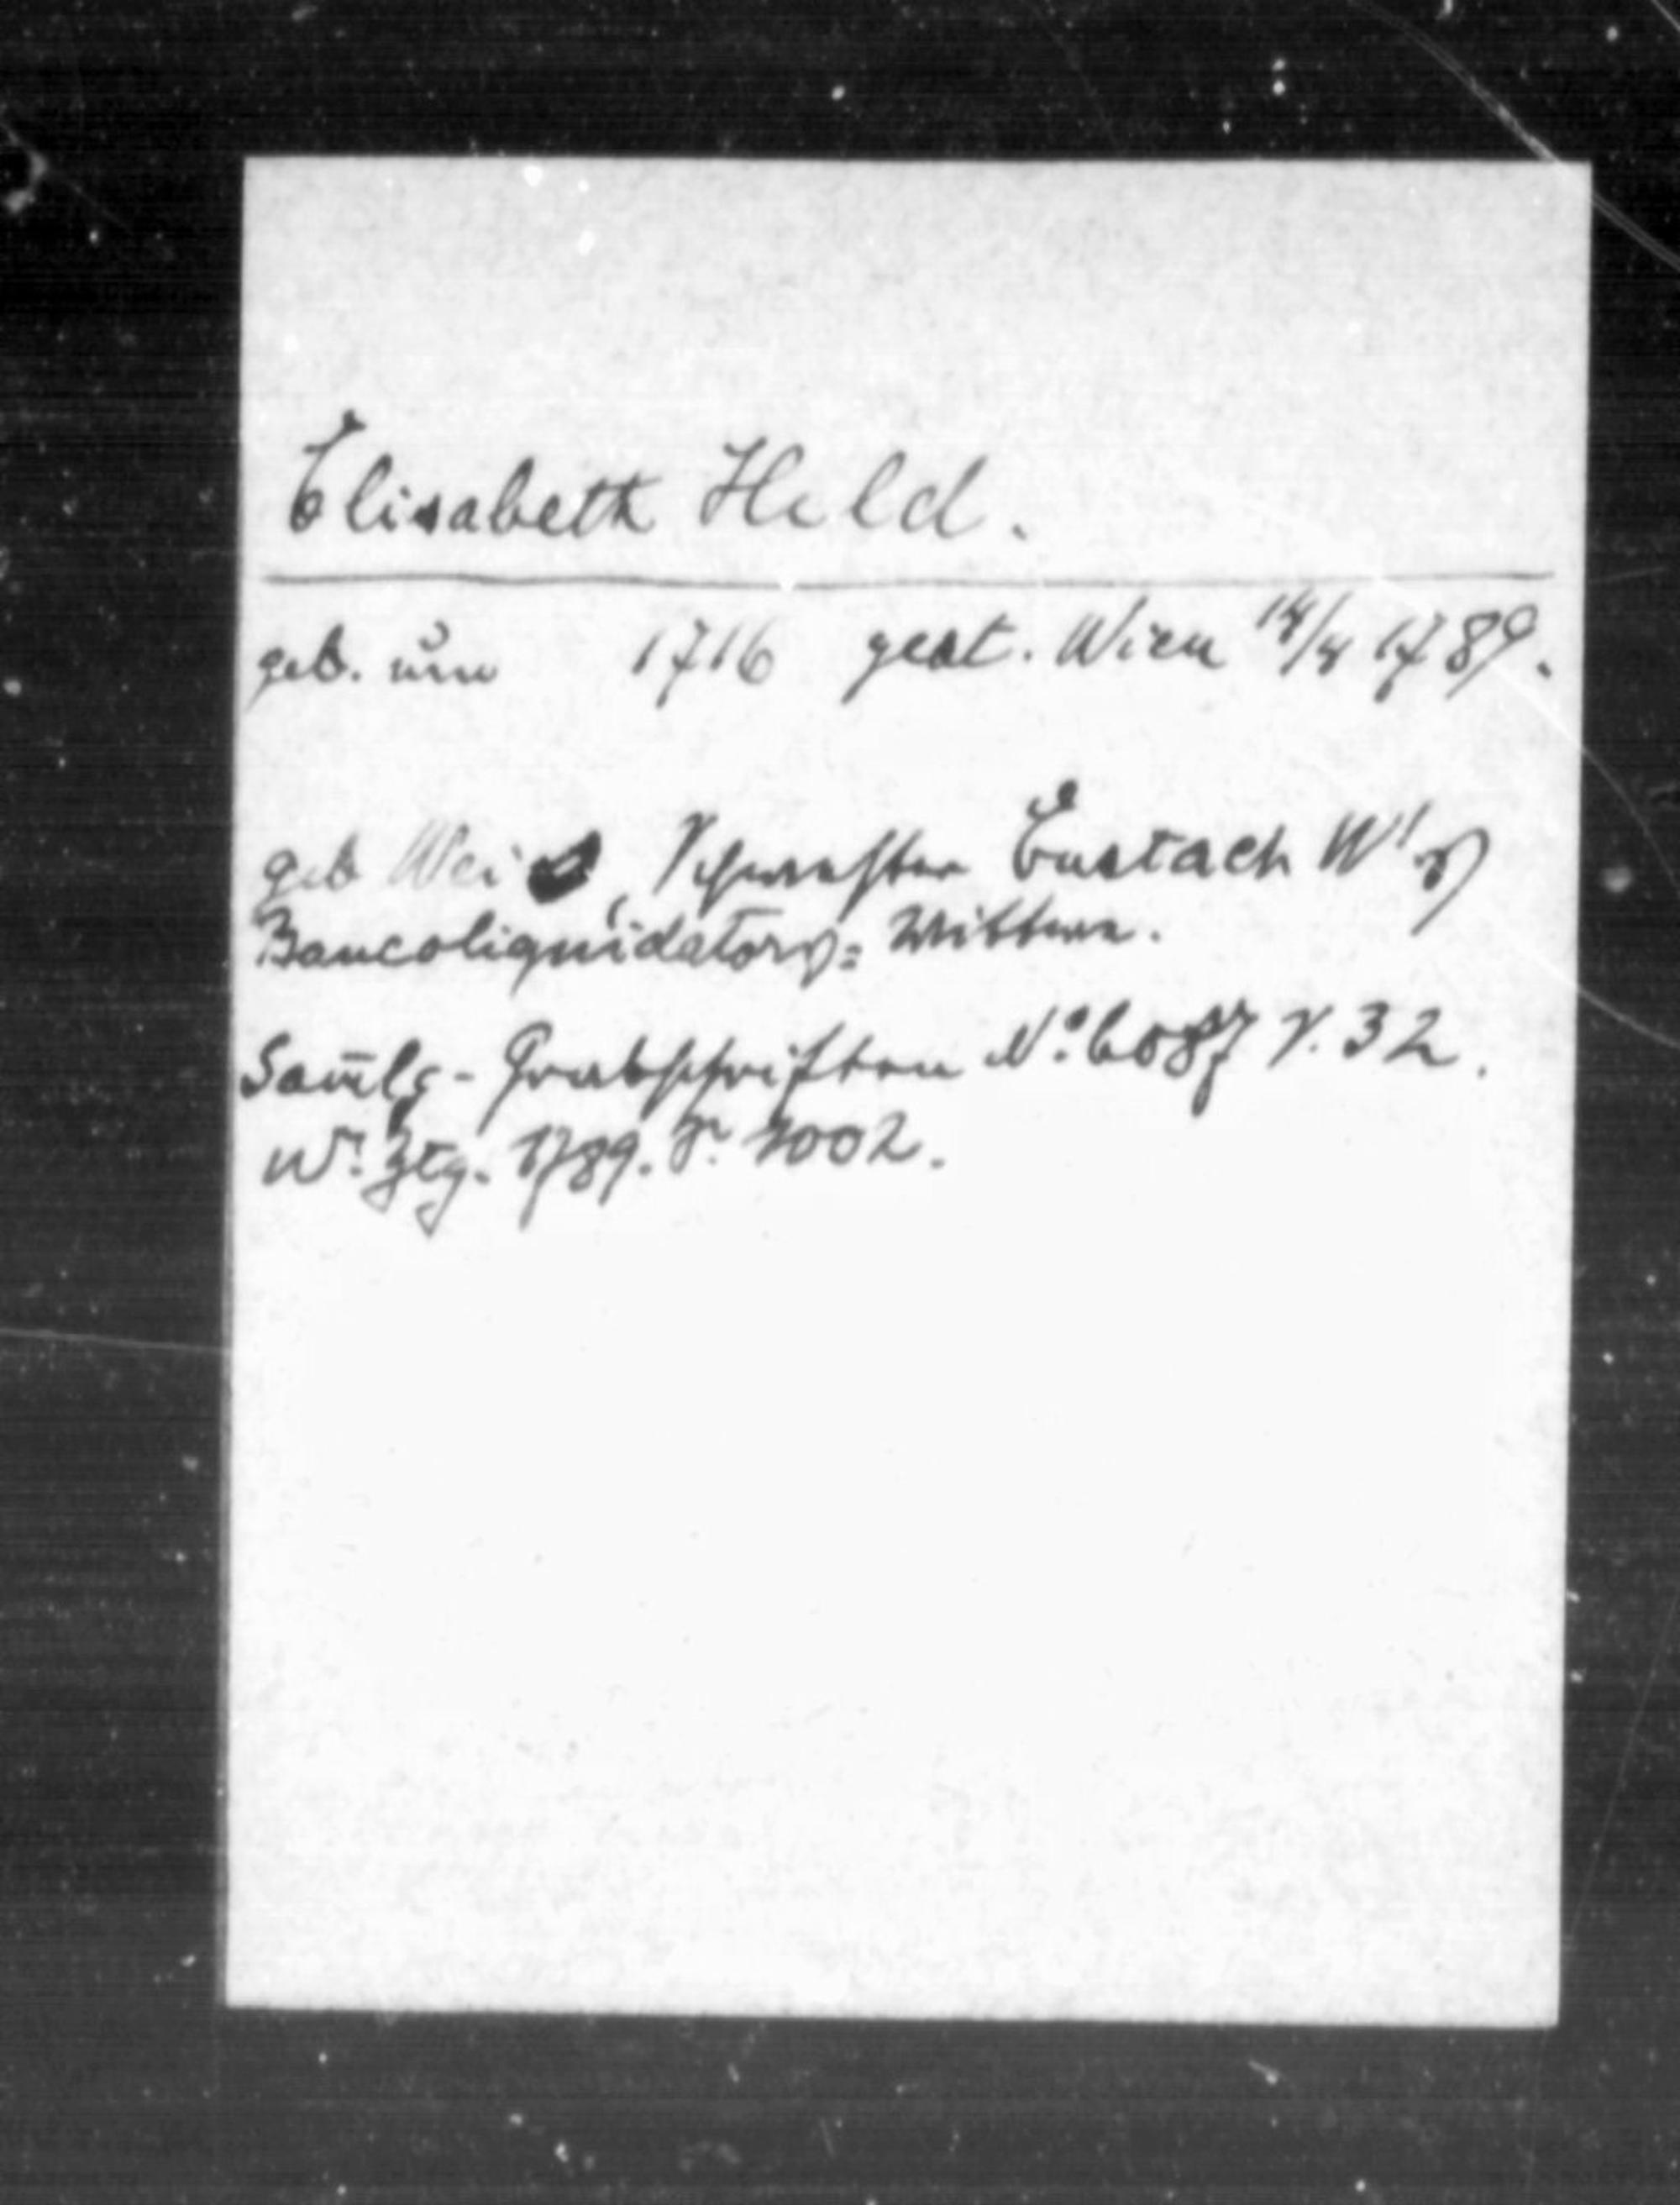 Elisabeth Held.
geb. um 1716 gest. Wien 14/4 1789.
geb Weis, Schwester Eustach W's
Bancoliquidators= Wittwe.
Sam̄lg - Grabschriften No. 6087 S. 32.
Wr. Ztg. 1789. S. 1002.